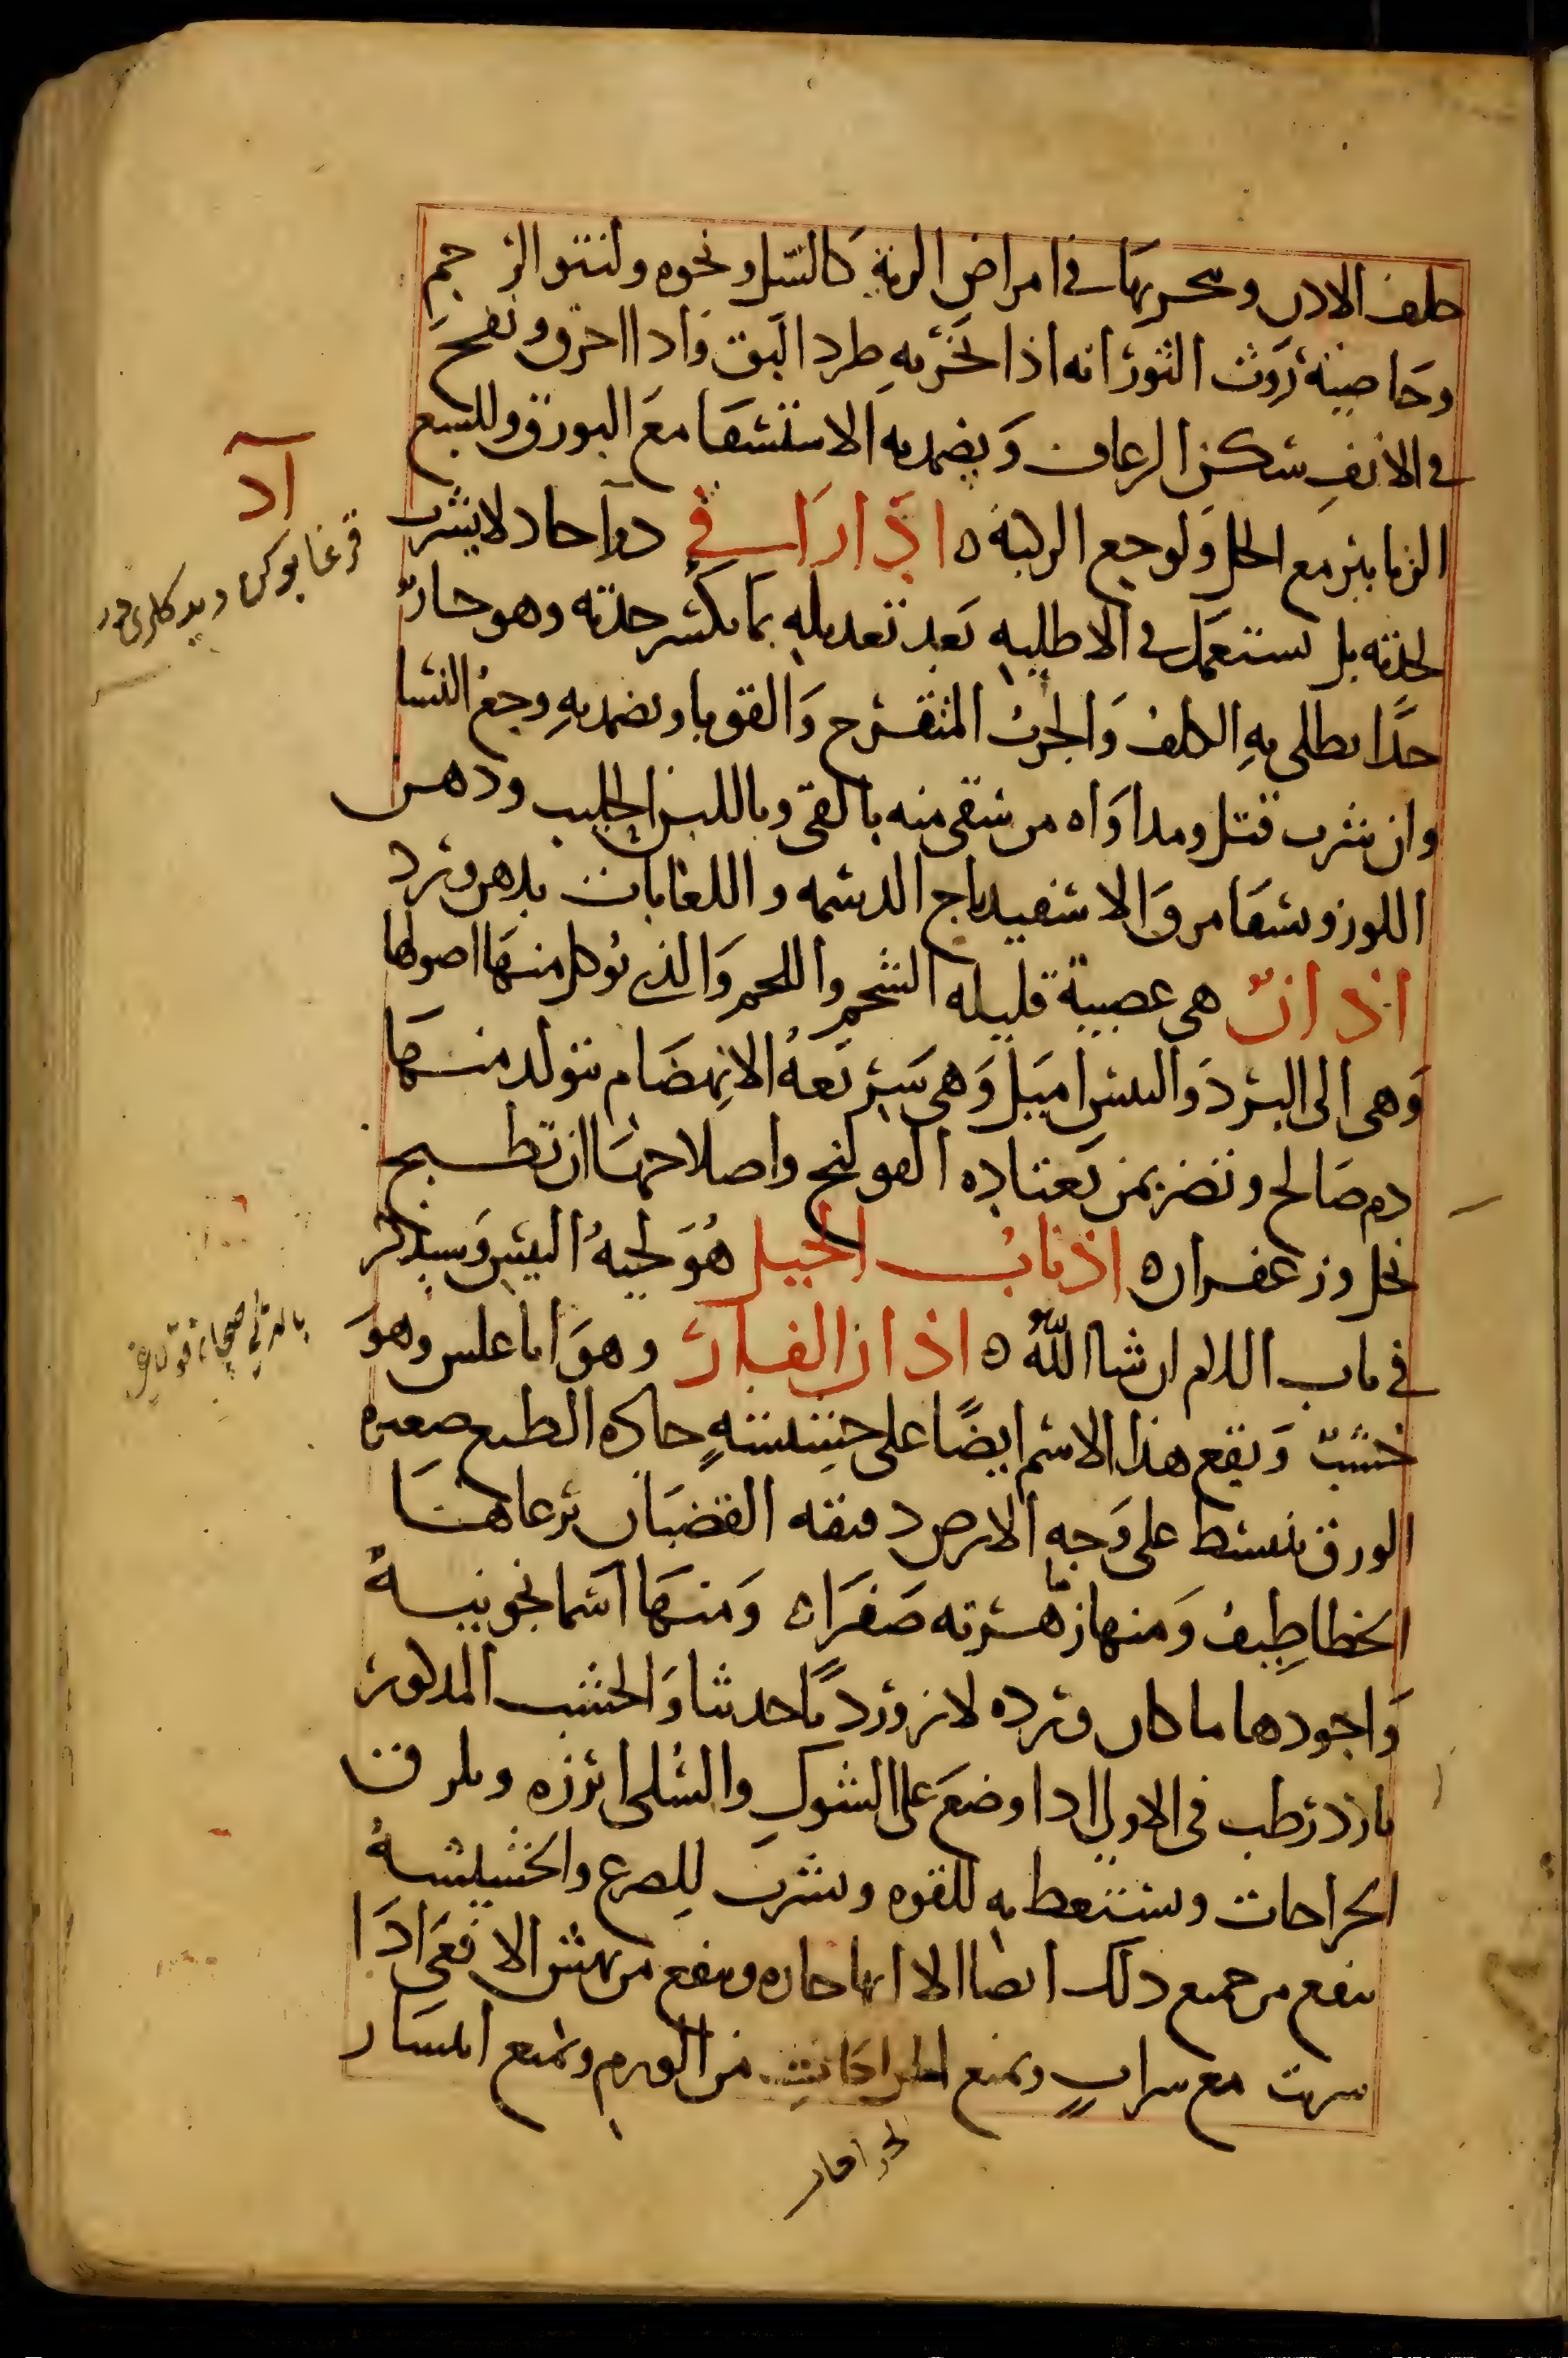 خلف الاذن ويبخر بها في امراض الرية كالسل ونحوه ولنتو الرحم
وخاصية روث الثور انه اذا بخر به طرد البق واذا احرق ونفخ
في الانف سكن الرعاف ويضمد به الاستسقا مع البورق وللسع
الزنابير مع الخل ولوجع الركبة ه اذاراسفي دوآ حاد لا يشرب
لحدته بل يستعمل في الاطليه بعد تعديله بما يكسر حدته وهو حار
جدا يطلى به الكلف والجرب المتقرح والقوبا ويضمد به وجع النسا
وان شرب قتل ومداواه من سقي منه بالقي وباللبن الحليب ودهن
اللوز ويسقا مرق الاسفيدباج الدسمه واللعابات بدهن ورد
اذان هي عصبية قليله الشحم واللحم والذي يوكل منها اصولها
وهي الى البرد واليبس اميل وهي سريعة الانهضام يتولد منها
دم صالح وتضر بمن يعتاده القولنج واصلاحها ان تطبخ
بخل وزعفران ه اذناب الخيل هو لحية التيس وسيذكر
في باب اللام ان شا الله ه اذان الفار وهو اناغلس وهو
خشب ويقع هذا الاسم ايضا على حشيشة حاده الطبع صغيره
الورق تنبسط على وجه الارض دقيقه القضبان ترعاها
الخطاطيف ومنها زهرته صفراه ومنها اسمانجونية
واجودها ما كان ورده لازوردياً حديثا والخشب المذكور
بارد رطب في الاولى اذا وضع على الشوك والسلى ابرزه ويلزق
الجراحات ويستعط به للقوه ويشرب للصرع والحشيشة
ينفع من جميع ذلك ايضا الا انها حاره وينفع من نهش الافعى اذا
شربت مع شراب ويمنع الجراحات من الورم ويمنع انتشار
آد